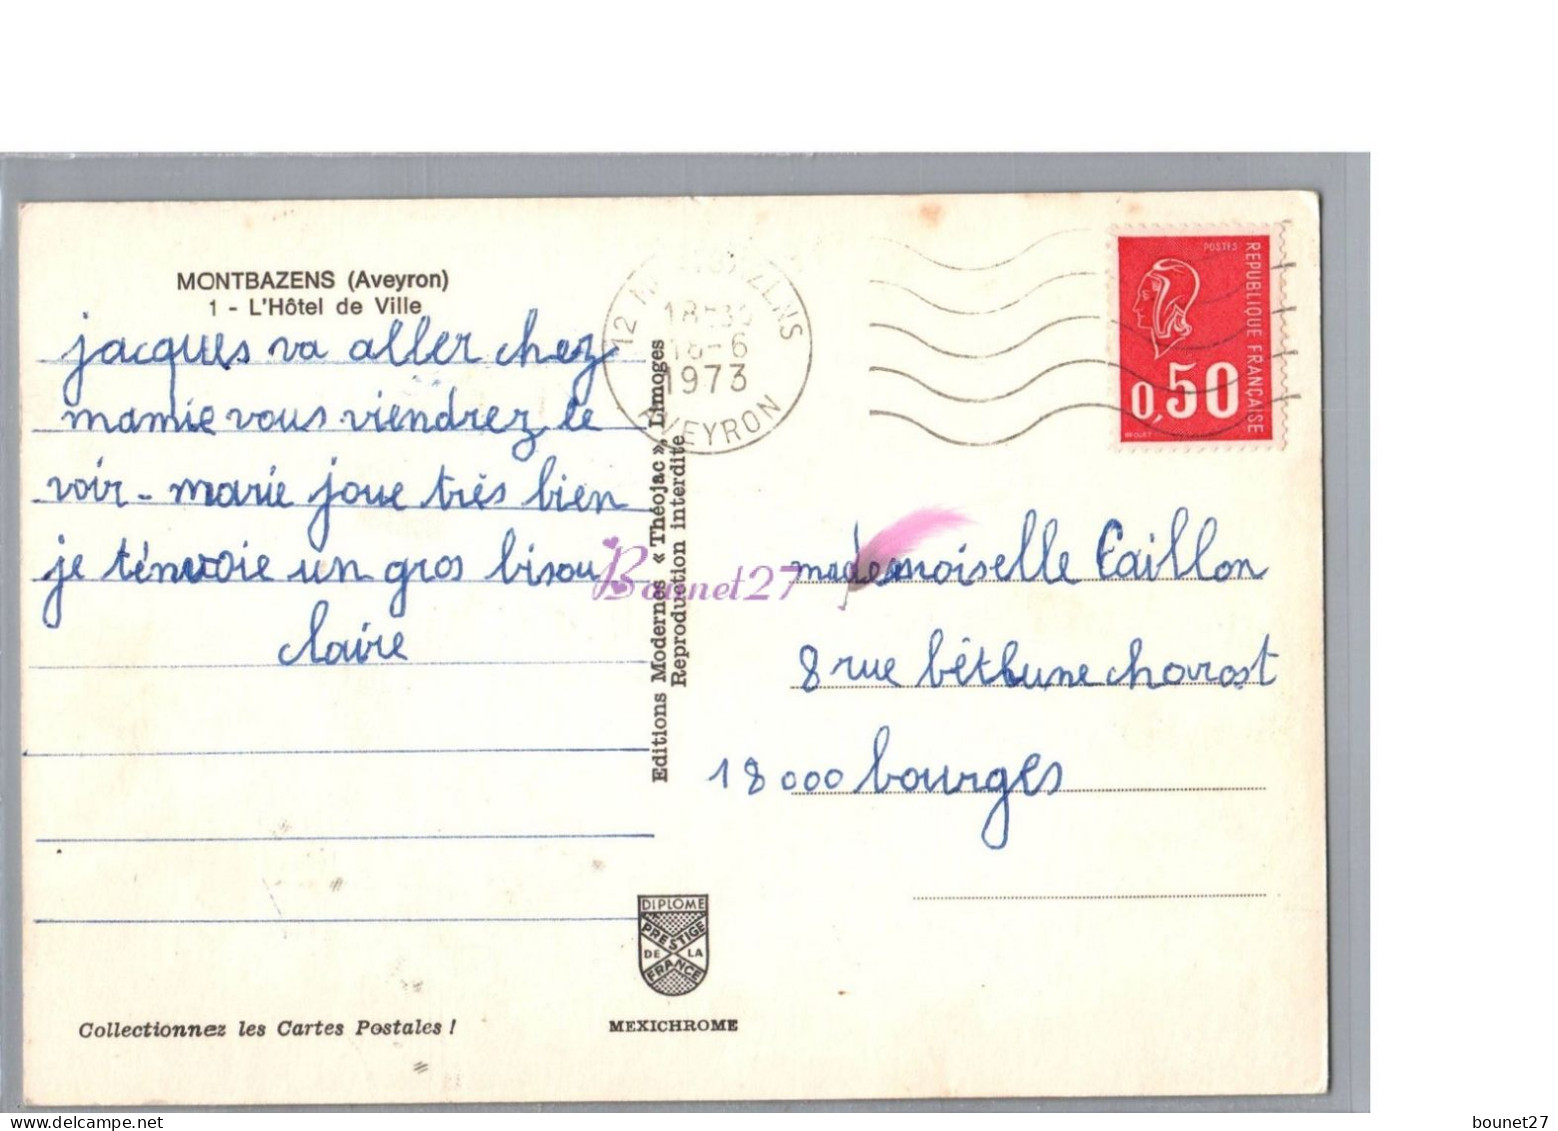 MONTBAZENS (Aveyron)
1 - L'Hôtel de Ville
jacques va aller chez
mamie vous viendrez le
voir - marie joue très bien
je t'envoie un gros bisou
claire
Editions Modernes « Théojac », Limoges
Reproduction interdite
12 MONTBAZENS
18H30
18-6
1973
AVEYRON
POSTES
REPUBLIQUE FRANÇAISE
0,50
BEQUET
Bounet27
mademoiselle Caillon
8 rue béthune charost
18000 bourges
DIPLOME
PRESTIGE
DE LA
FRANCE
MEXICHROME
Collectionnez les Cartes Postales !
bounet27